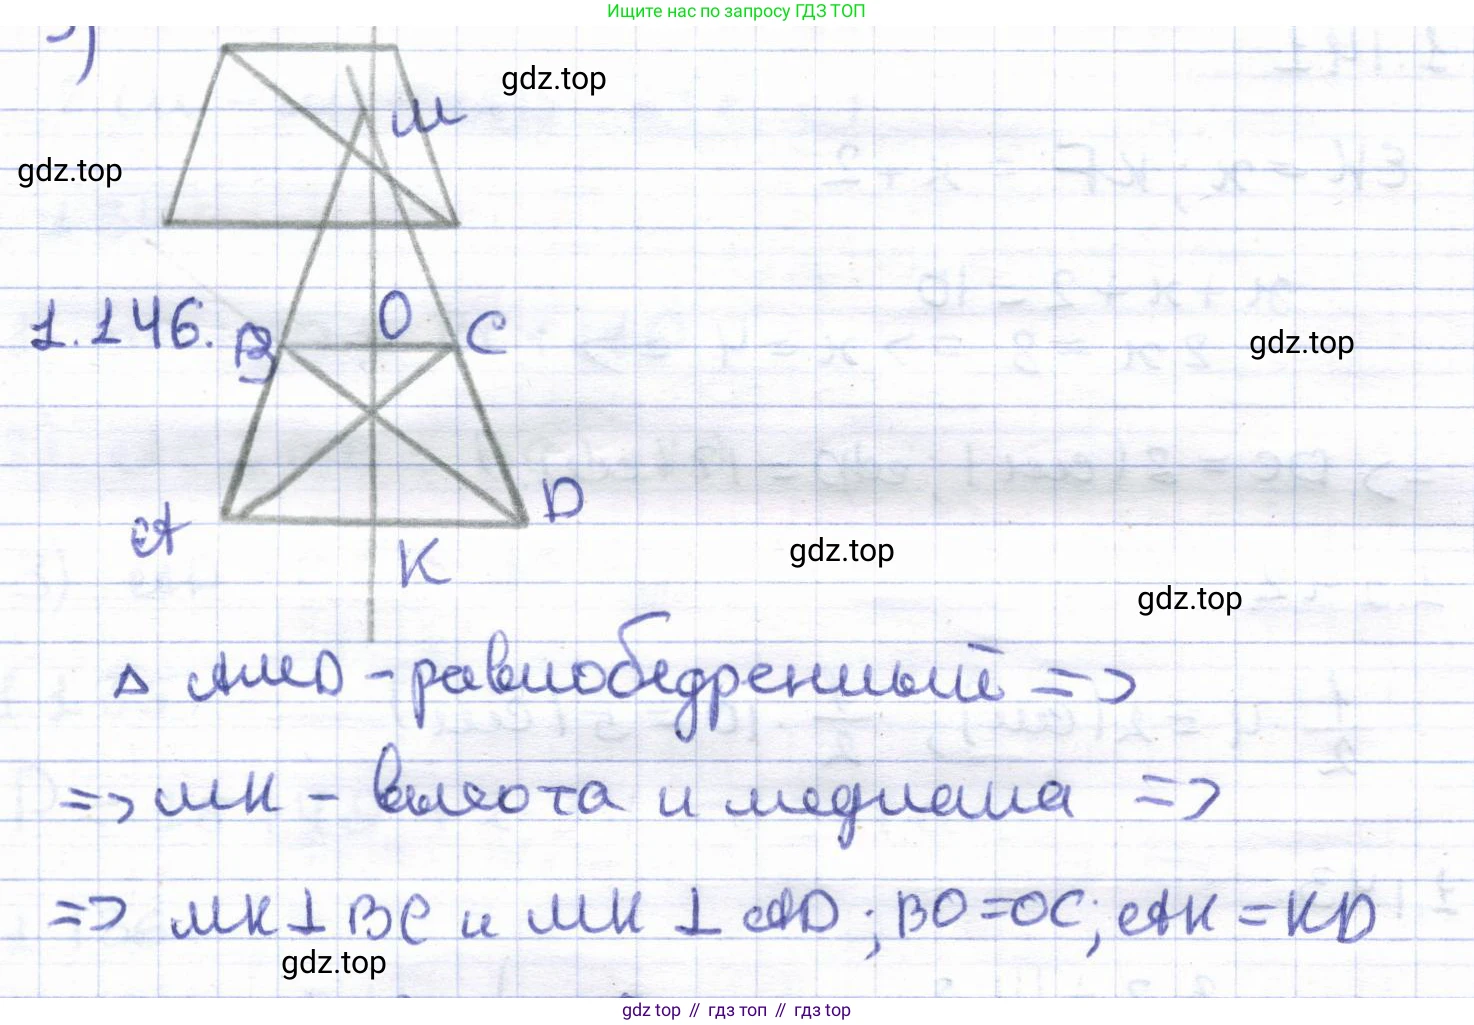 Ищите нас по запросу ГДЗ ТОП
)
gdz.top
M
gdz.top
1.146.
B
O
C
gdz.top
A
D
K
gdz.top
gdz.top
Δ AMD - равнобедренный =>
=> MK - высота и медиана =>
=> MK ⊥ BC и MK ⊥ AD; BO = OC; AK = KD
gdz.top
gdz top // гдз топ // гдз top